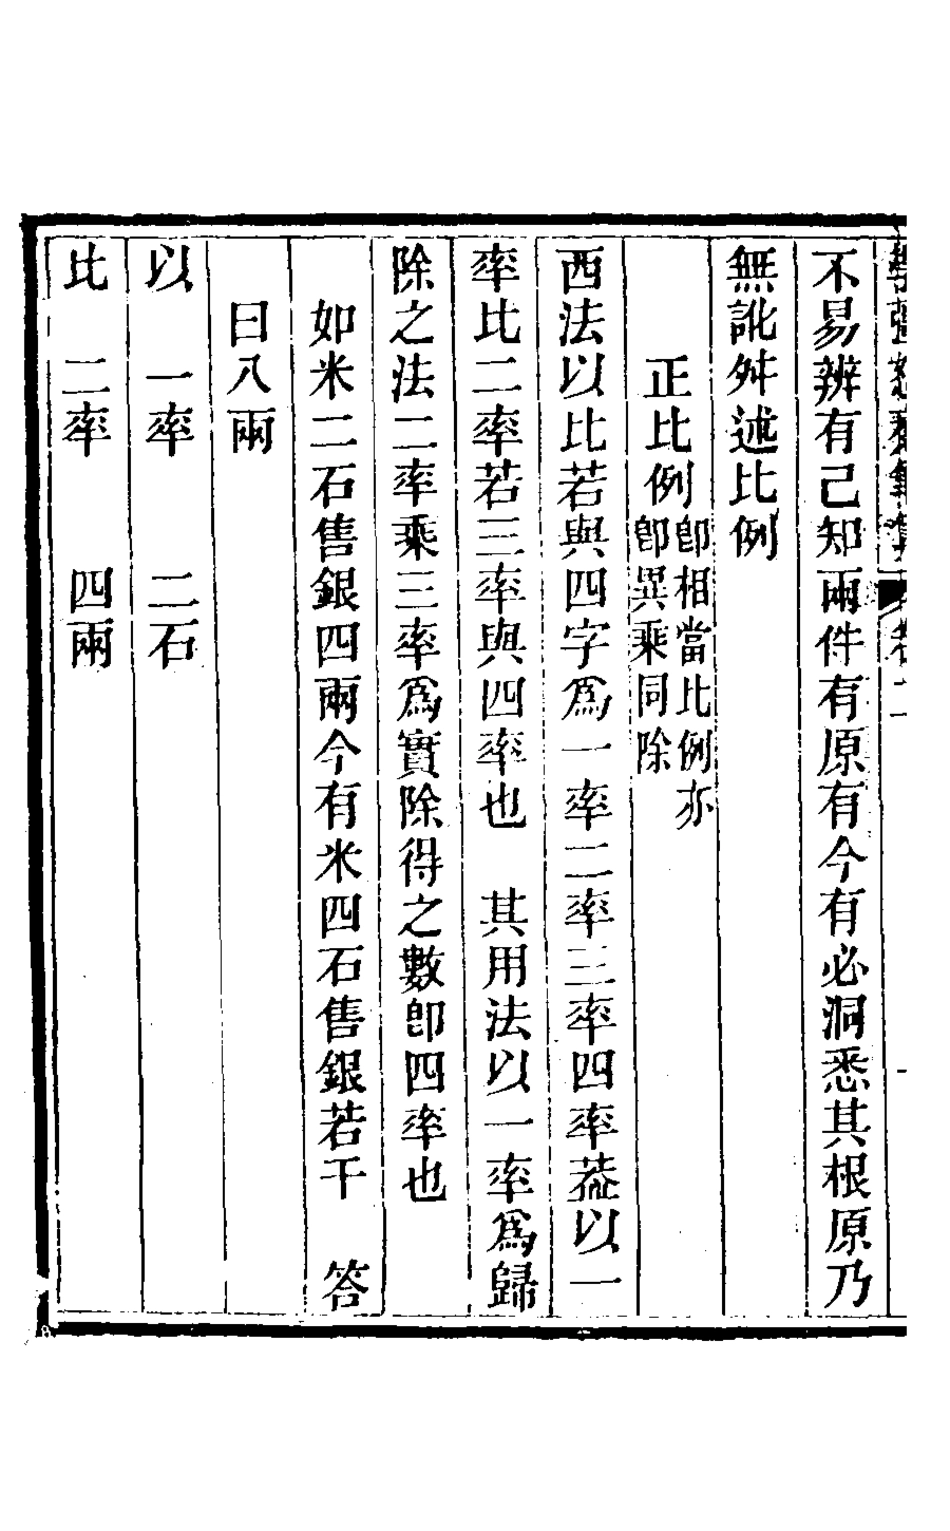 不易辨有己知兩件有原有今有必洞悉其根原乃
無訛舛述比例
正比例卽相當比例亦卽異乘同除
西法以比若與四字爲一率二率三率四率葢以一
率比二率若三率與四率也　其用法以一率爲歸
除之法二率乘三率爲實除得之數卽四率也
如米二石售銀四兩今有米四石售銀若干　答
曰八兩
以　一率　　二石
比　二率　　四兩